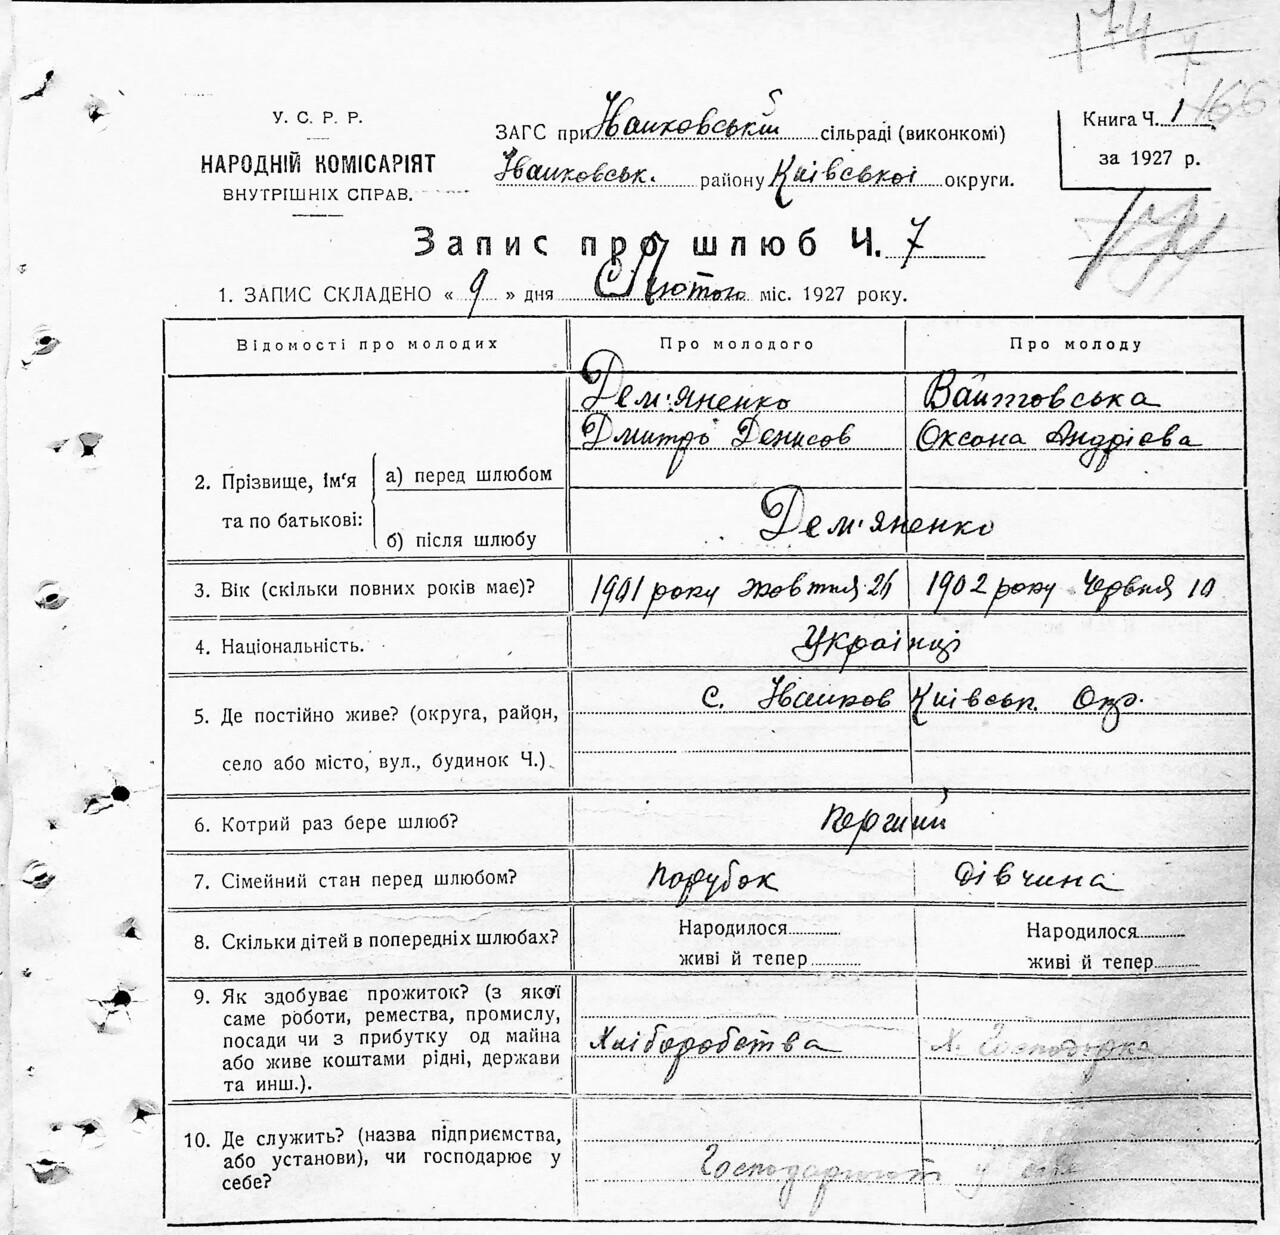 174
7
166
У. С. Р. Р.
НАРОДНІЙ КОМІСАРІЯТ
ВНУТРІШНІХ СПРАВ.
ЗАГС при Іванковській сільраді (виконкомі)
Іванковськ. району Київської округи.
Книга Ч. 1
за 1927 р.
174
Запис про шлюб Ч. 7
1. ЗАПИС СКЛАДЕНО « 9 » дня Лютого міс. 1927 року.
Відомості про молодих Про молодого Про молоду
Дем'яненко Войтовська
Дмитро Денисов Оксана Андрієва
2. Прізвище, ім'я та по батькові:
а) перед шлюбом
б) після шлюбу
Дем'яненко
3. Вік (скільки повних років має)? 1901 року жовтня 26 1902 року червня 10
4. Національність. Українці
5. Де постійно живе? (округа, район, с. Іванков Київськ. Окр.
село або місто, вул., будинок Ч.)
6. Котрий раз бере шлюб? Перший
7. Сімейний стан перед шлюбом? Парубок Дівчина
8. Скільки дітей в попередніх шлюбах? Народилося Народилося
живі й тепер живі й тепер
9. Як здобуває прожиток? (з якої
саме роботи, ремества, промислу,
посади чи з прибутку од майна Хліборобства Х. Господарка
або живе коштами рідні, держави
та инш.).
10. Де служить? (назва підприємства,
або установи), чи господарює у Господарюют у себе
себе?